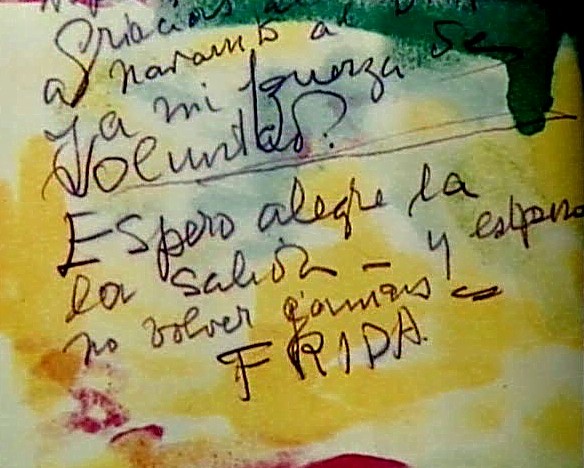 Gracias a
a Naranjo al
y a mi fuerza de
Voluntad?
Espero alegre la
la salida – y espero
no volver jamas –
FRIDA